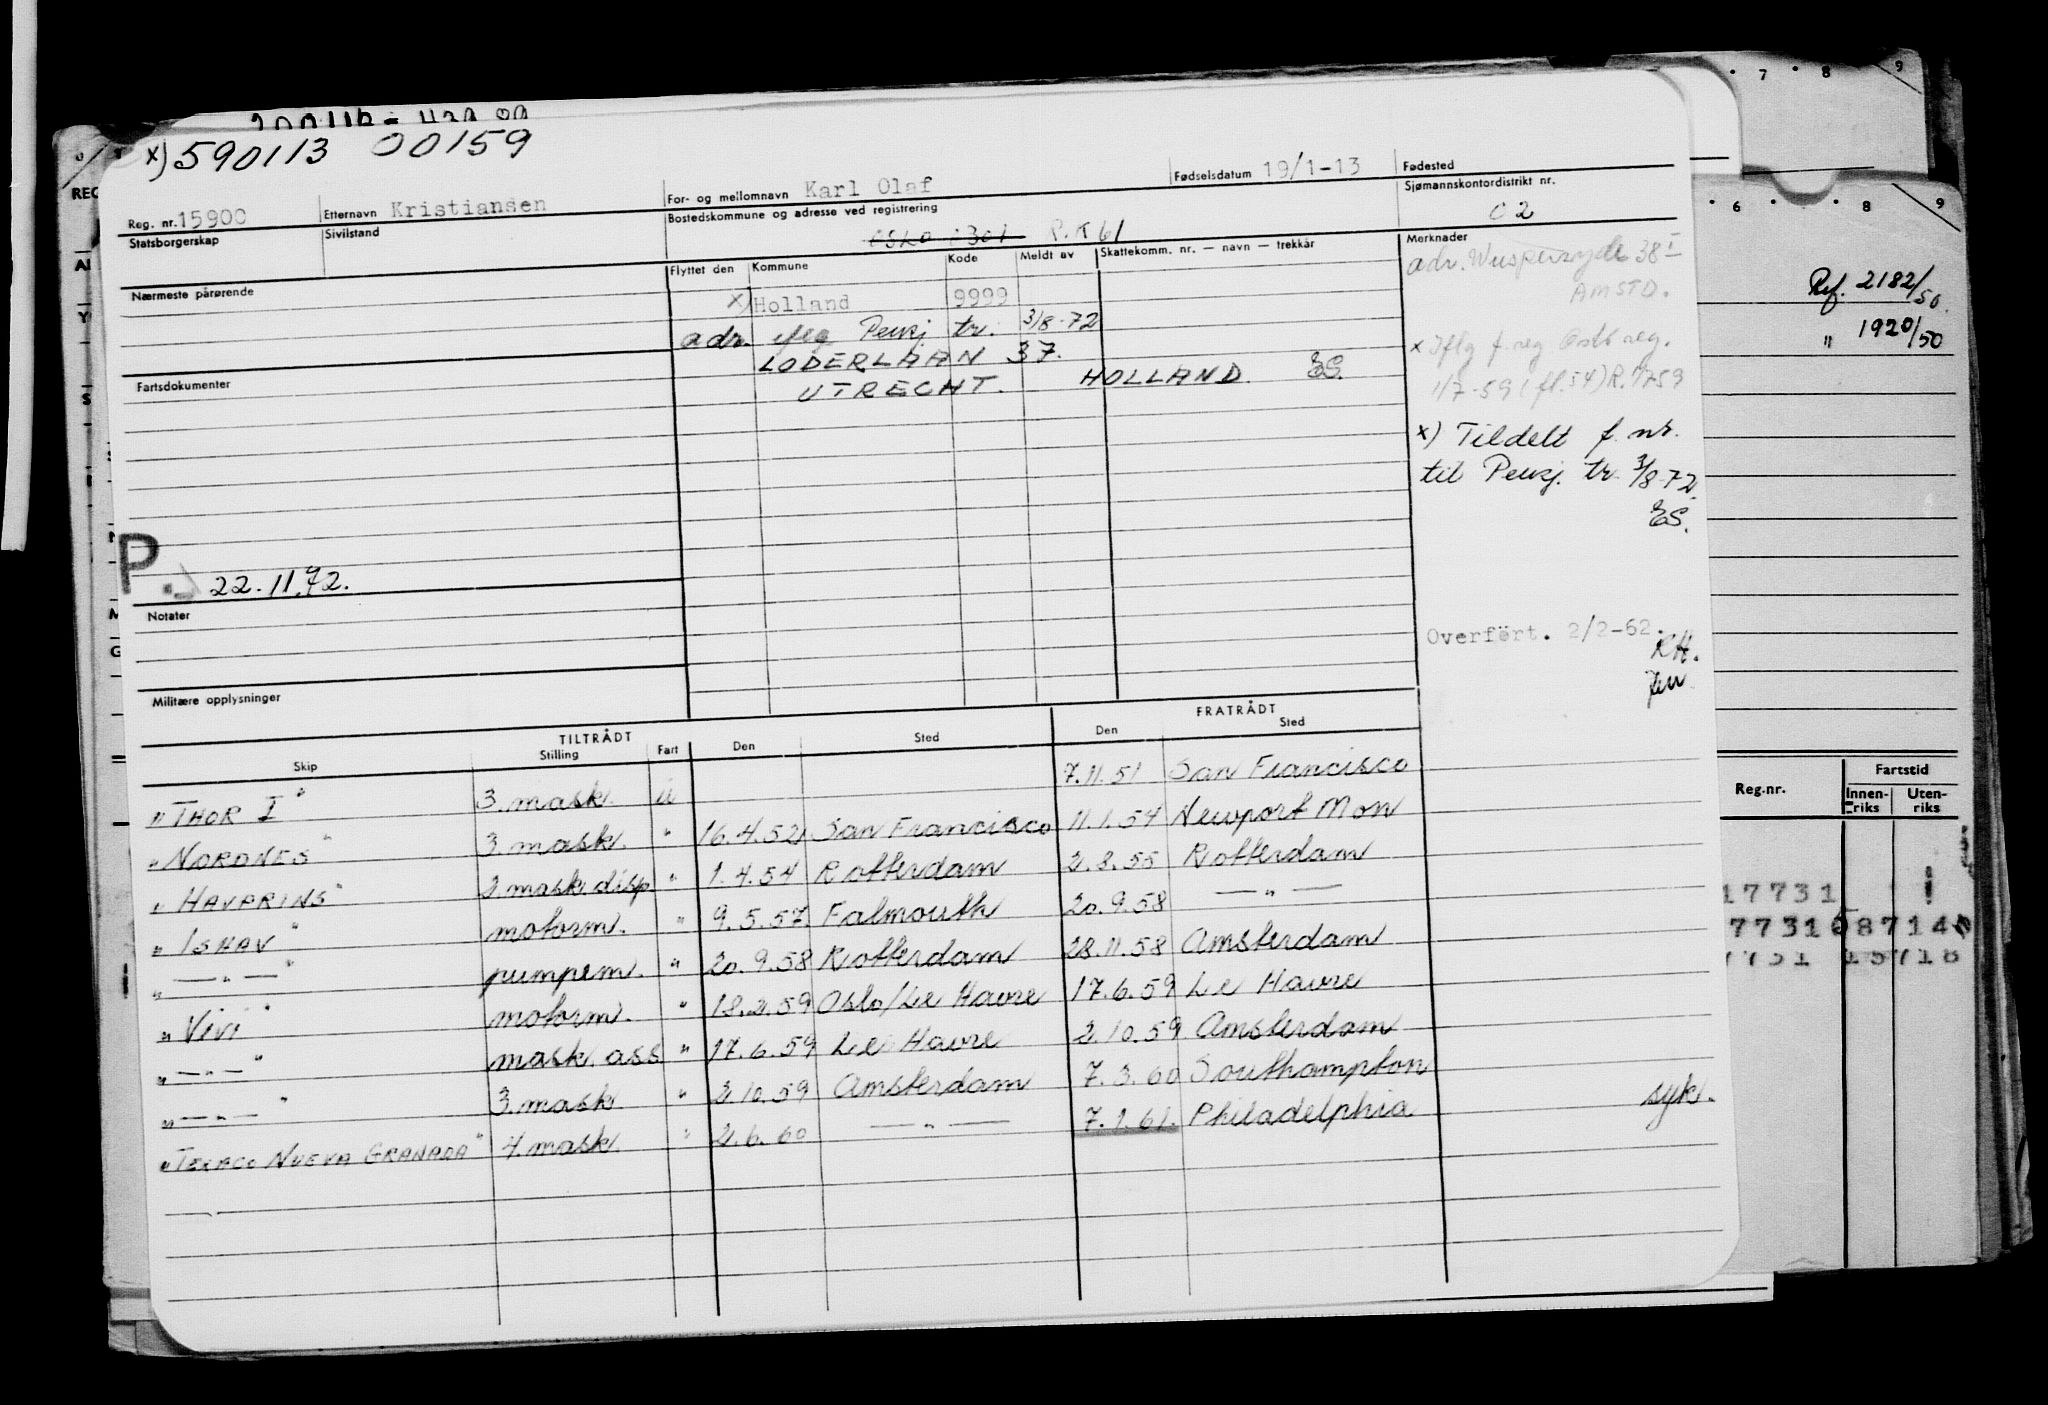 x) 590113 00159
Reg. nr. 15900 Etternavn Kristiansen For- og mellomnavn Karl Olaf Fødselsdatum 19/1-13 Fødested
Statsborgerskap Sivilstand Bostedskommune og adresse ved registrering Sjømannskontordistrikt nr.
P.T 61 02
Nærmeste pårørende Flyttet den Kommune Kode Meldt av Skattekomm. nr. — navn — trekkår Merknader
x) Holland 9999
adr. iflg Pensj tr. 3/8-72
LODERLAAN 37.
UTRECHT. HOLLAND. ES.
Fartsdokumenter
adr. 38 I
AMSTD.
x Iflg f.reg Oslo reg.
1/7-59 (fl.54) R. 1/759
x) Tildelt f. nr.
til Pensj. tr. 3/8-72
ES.
P.
22.11.72.
Notater
Militære opplysninger
Overfërt. 2/2-62.
RH.
TILTRÅDT FRATRÅDT
Skip Stilling Fart Den Sted Den Sted
"THOR I" 3. mask. u 7.11.51 San Francisco
"NORDNES" 3. mask. " 16.4.52 San Francisco 11.1.54 Newport Mon
"HAVPRINS" 2. mask. disp " 1.4.54 Rotterdam 2.8.55 Rotterdam
"ISHAV" motorm. " 9.5.57 Falmouth 20.9.58 — " —
" — " — " pumpem. " 20.9.58 Rotterdam 28.11.58 Amsterdam
"VIVI" motorm. " 18.2.59 Oslo/Le Havre 17.6.59 Le Havre
" — " — " mask. ass " 17.6.59 Le Havre 2.10.59 Amsterdam
" — " — " 3. mask. " 2.10.59 Amsterdam 7.3.60 Southampton
"TEXACO NUEVA GRANADA" 4. mask. " 2.6.60 — " — 7.1.61. Philadelphia syk.
7 8 9
6 8 9
Ref. 2182/50.
" 1920/50
Reg.nr. Fartstid
Innenriks Utenriks
17731